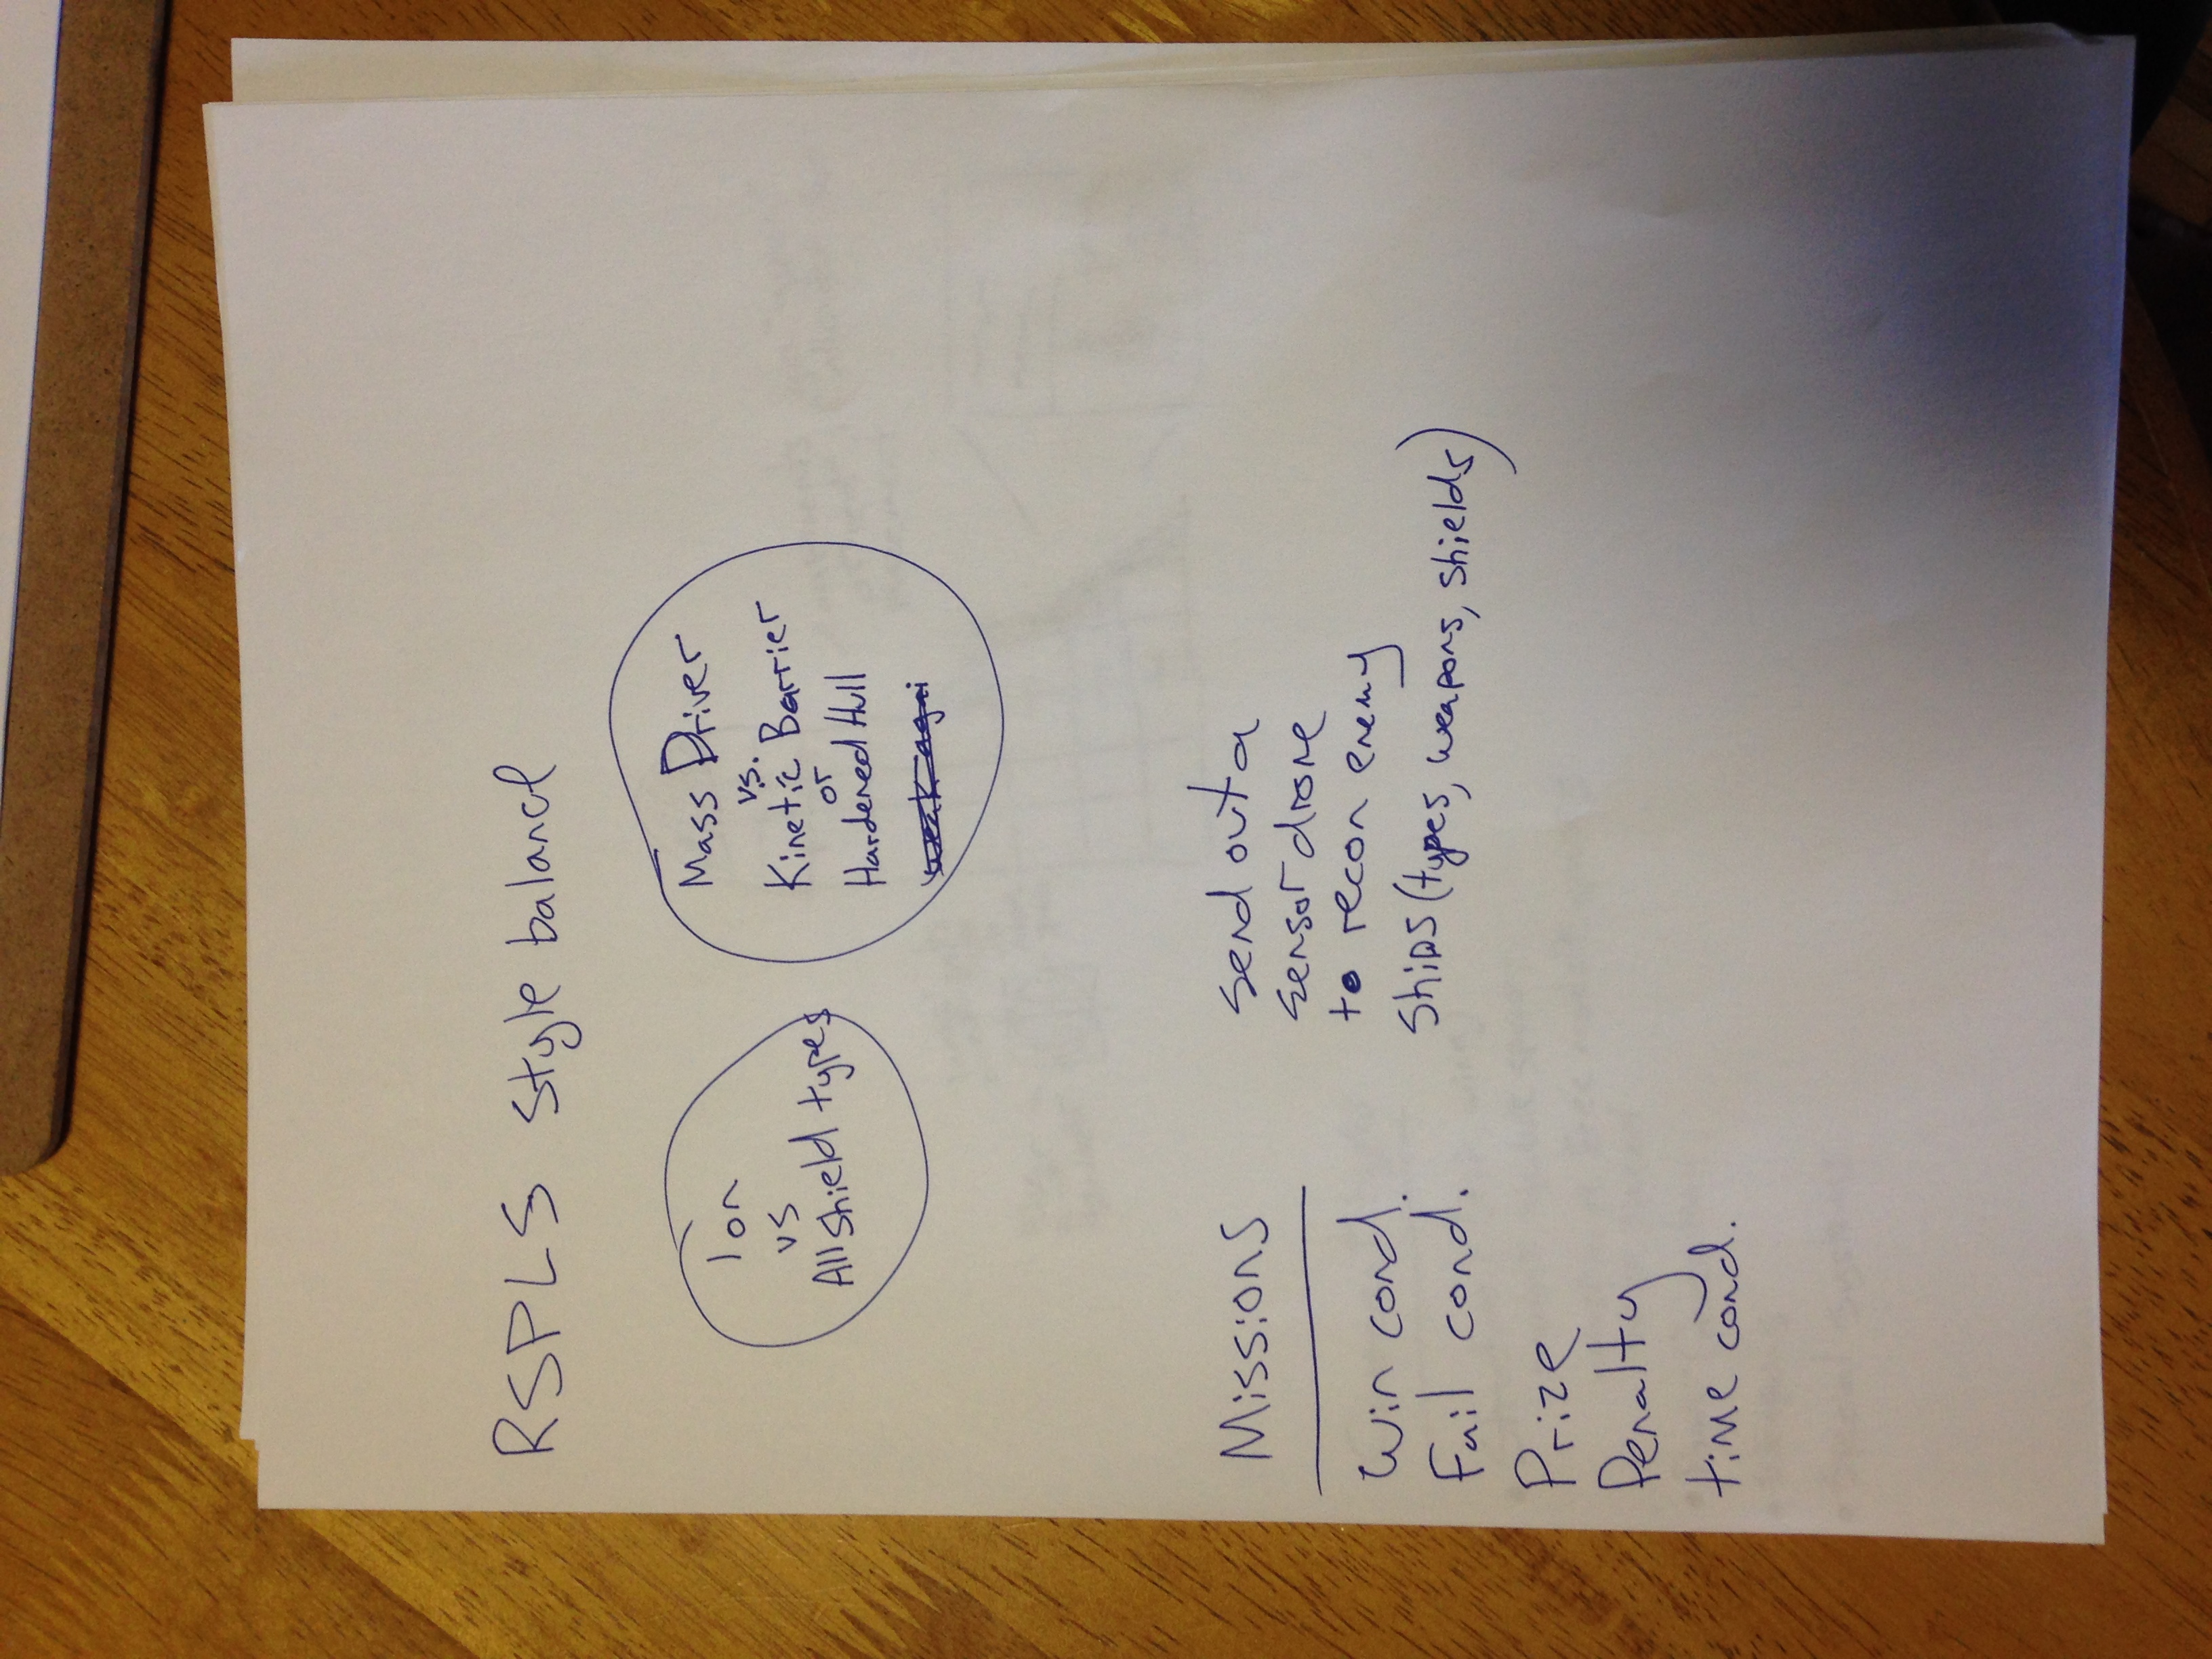 RSPLS style balance
Ion
vs
All shield types
Mass Driver
vs.
Kinetic Barrier
or
Hardened Hull
weak agai
Missions
Win cond.
Fail cond.
Prize
Penalty
time cond.
send out a
sensor drone
to recon enemy
ships (types, weapons, shields)